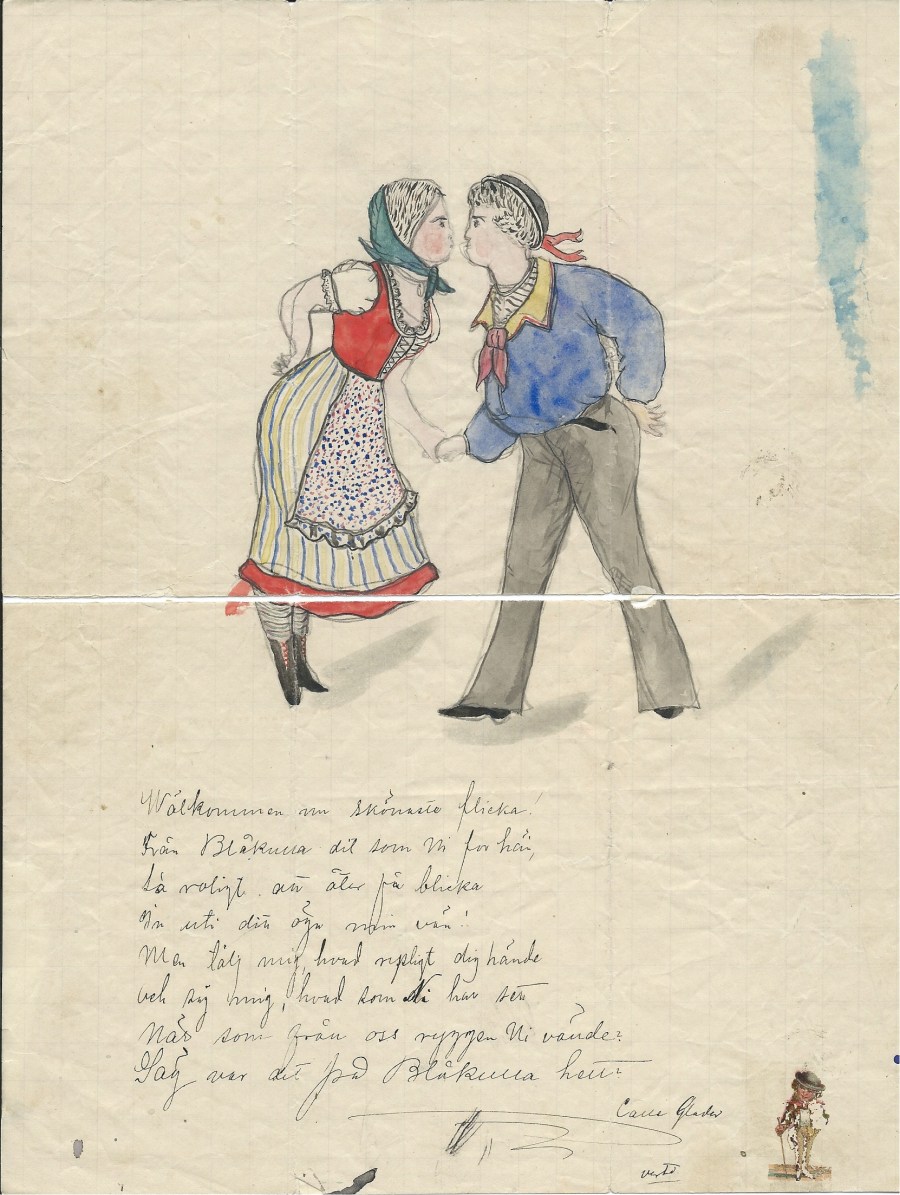 Wälkommen nu skönaste flicka!
Från Blåkulla dit som Ni for hän,
Så roligt att åter få blicka
In uti ditt öga min vän!
Men tälj mig, hvad rysligt dig hände
och säg mig, hvad som Ni har sett
När som från oss ryggen Ni vände?
Säg var det på Blåkulla hett?
Calle Glader